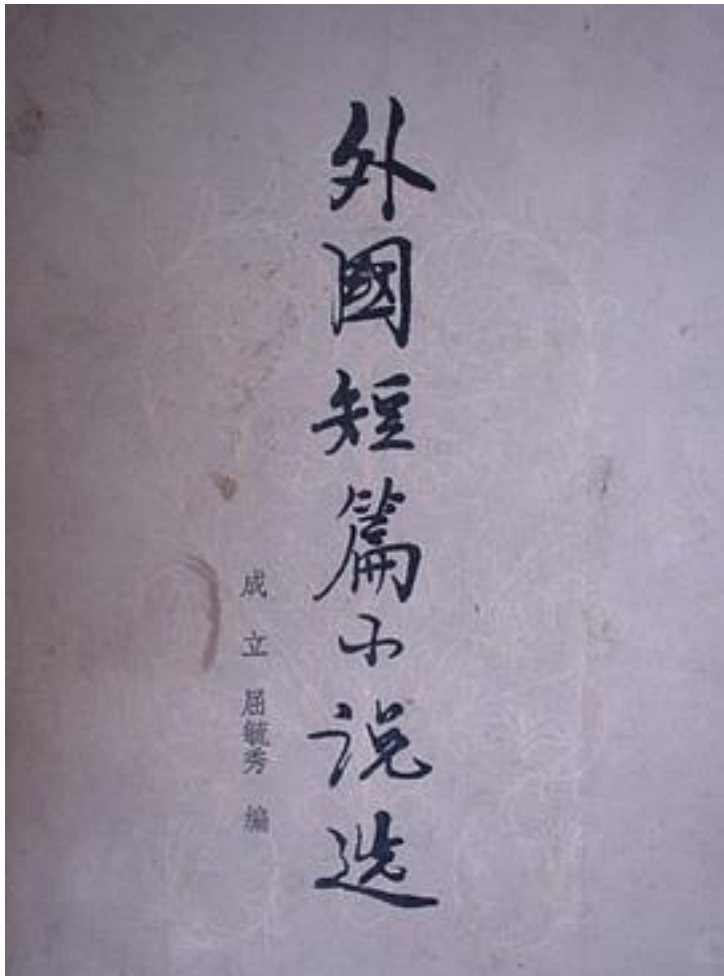 外國短篇小说选
成立 屈毓秀 编